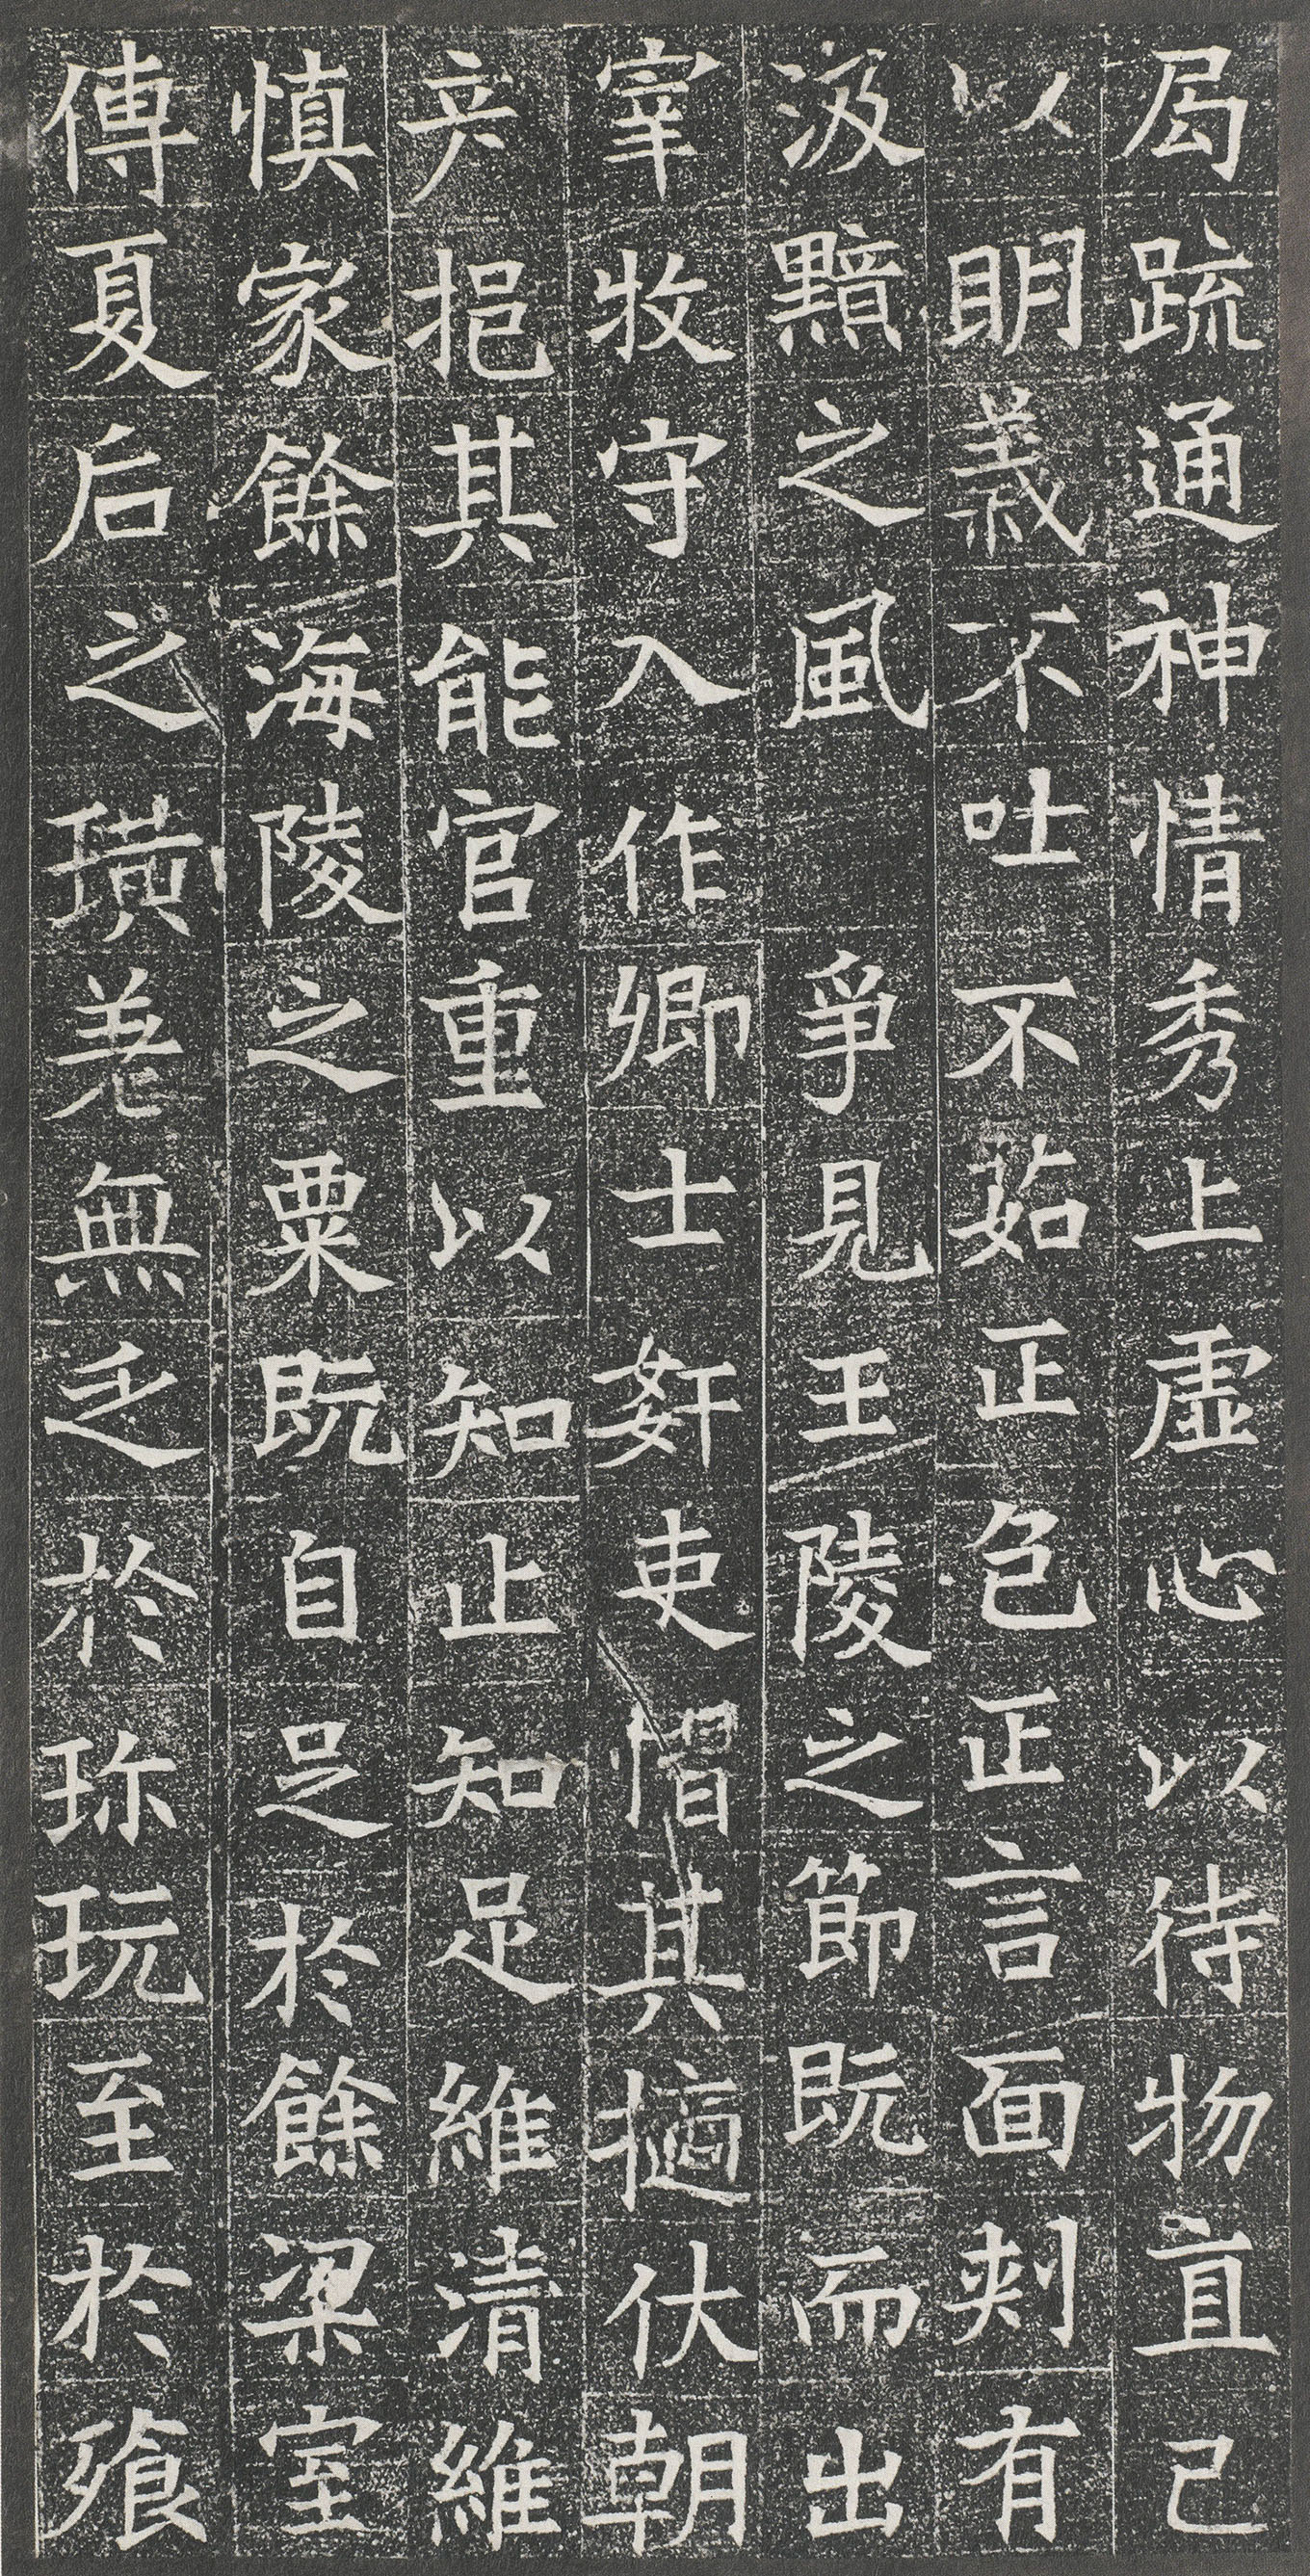 局疏通神情秀上虛心以待物直己
以明義不吐不茹正色正言面刺有
汲黯之風爭見王陵之節既而出
宰牧守入作卿士奸吏慴其擿伏朝
彥挹其能官重以知止知足維清維
慎家餘海陵之粟既自足於餘梁室
傳夏后之璜羌無乏於珎玩至於飡